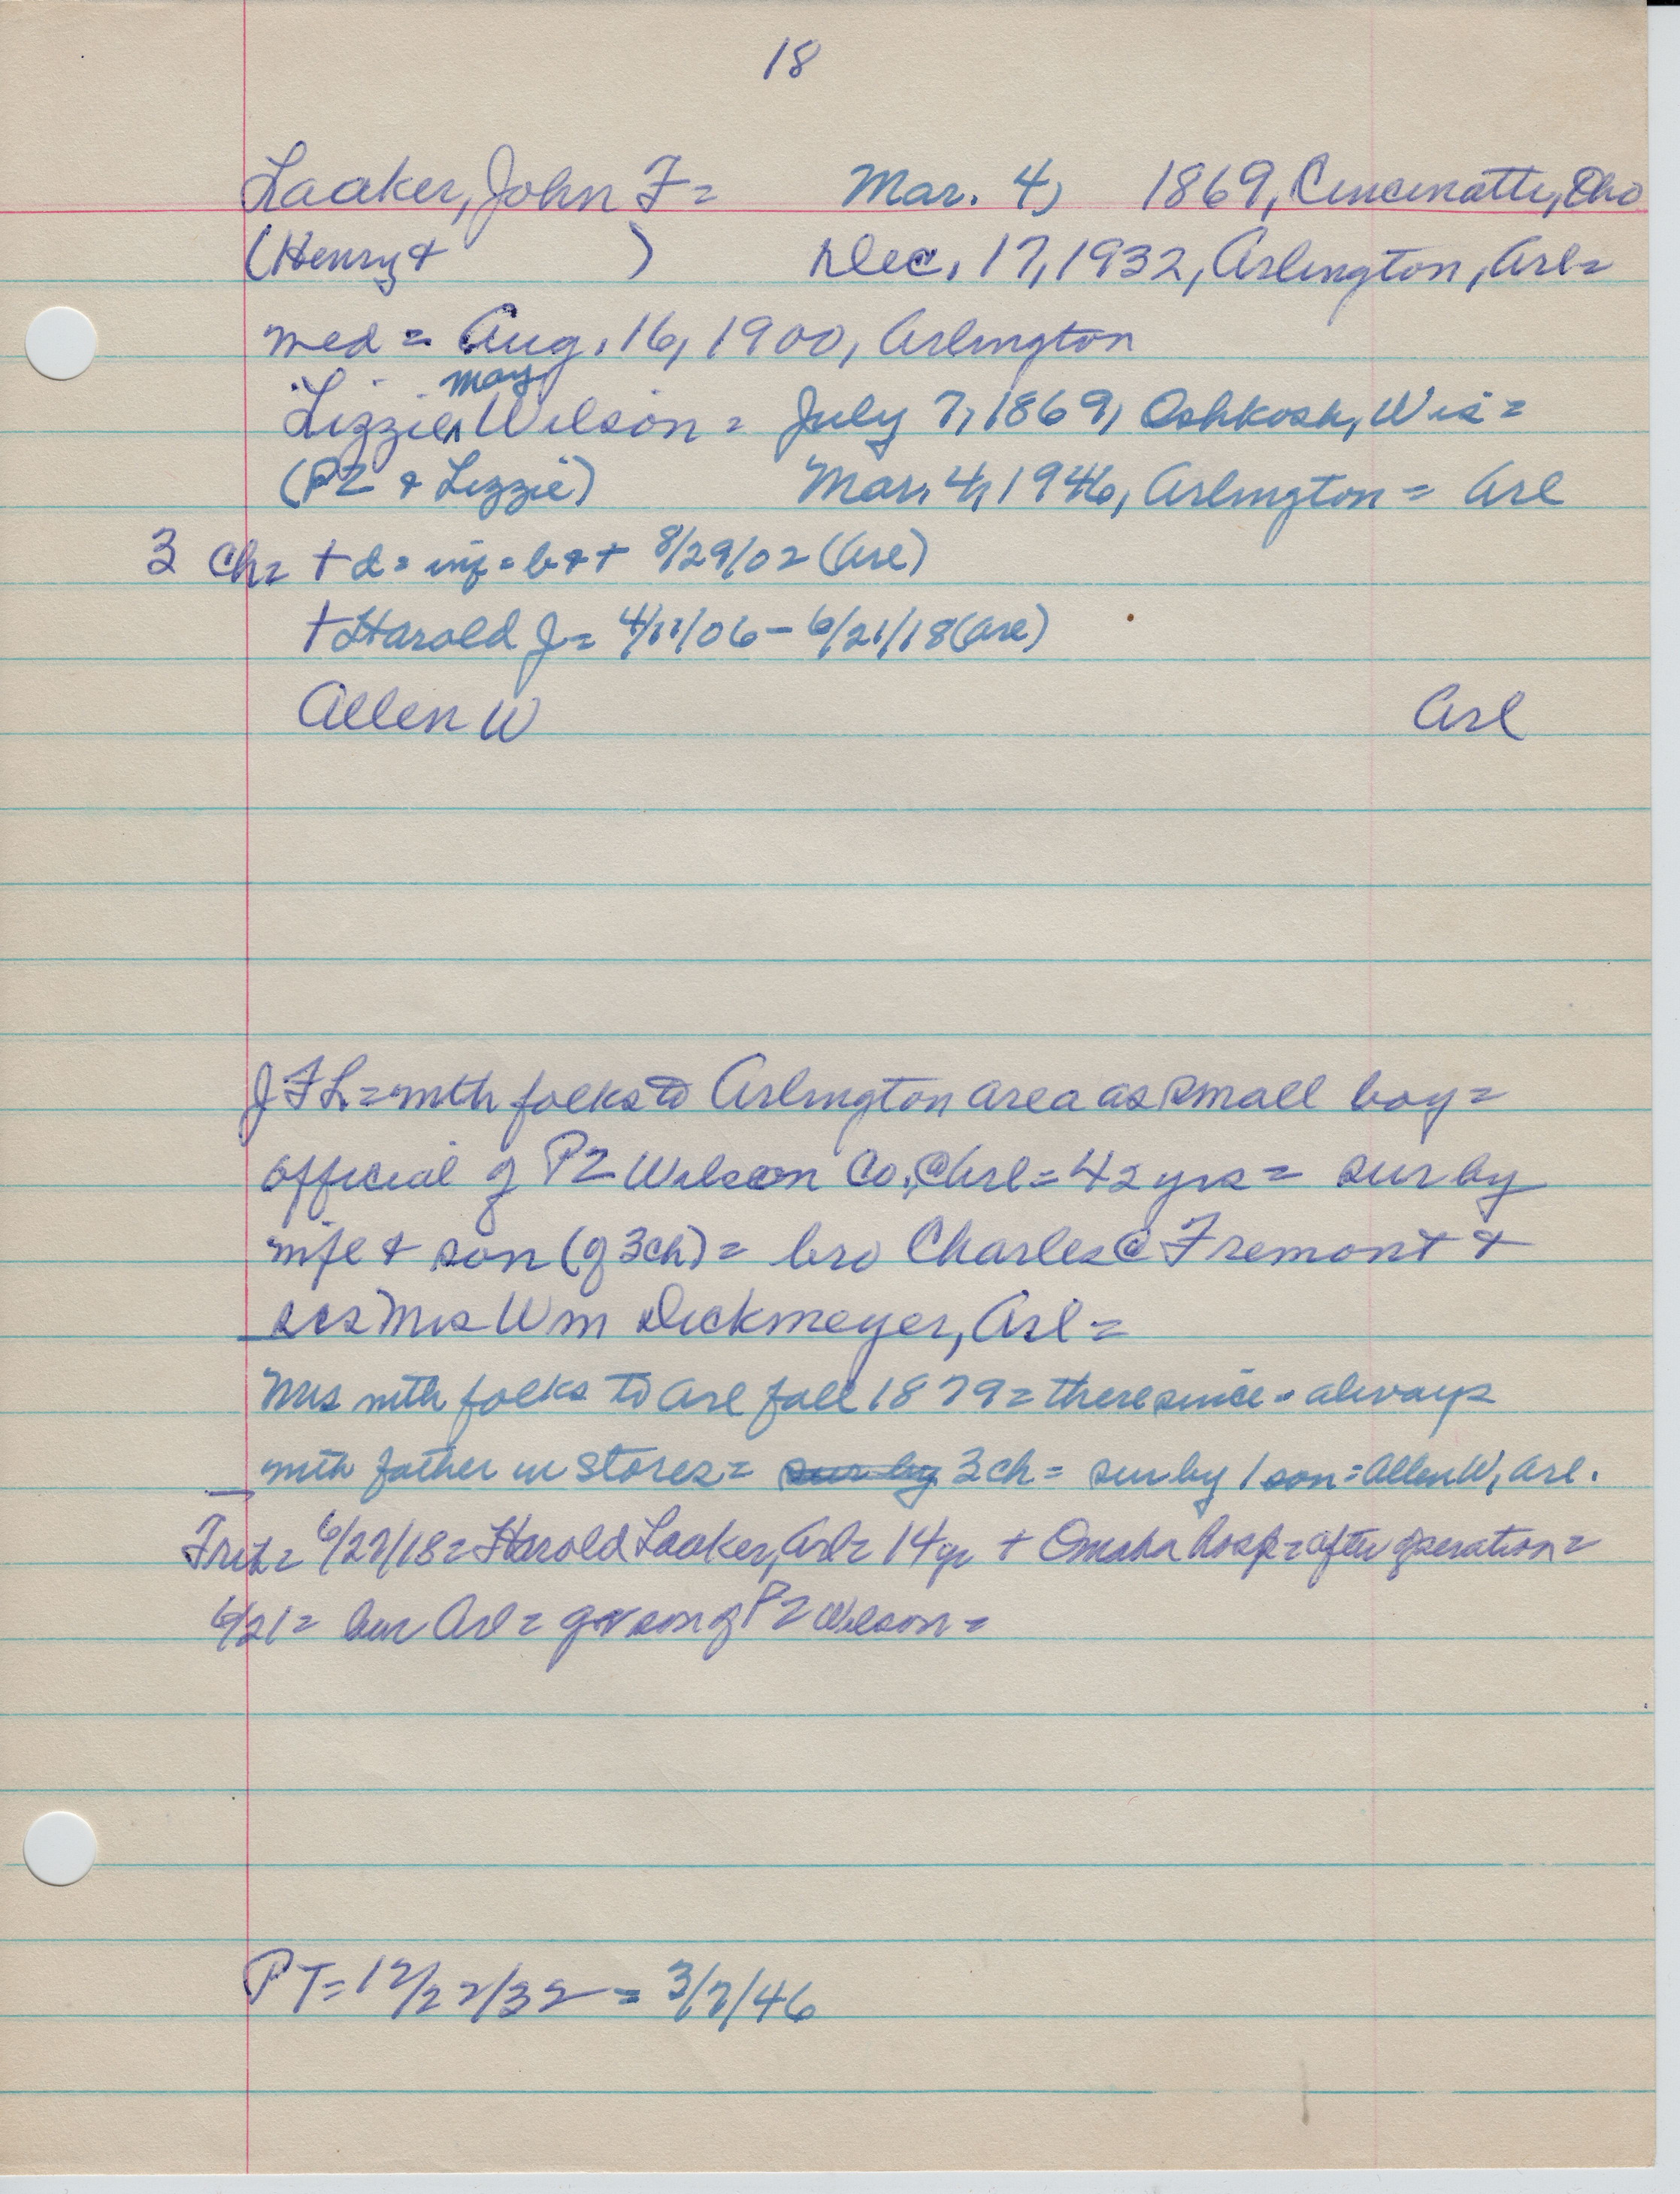 18
Laaker, John F = Mar. 4, 1869, Cincinatti, Oho
(Henry + ) Dec. 17, 1932, Arlington, Arl =
med = Aug. 16, 1900, Arlington
may
Lizzie Wilson = July 7, 1869, Oshkosh, Wis =
(PZ + Lizzie) Mar. 4, 1946, Arlington = Arl
3 Ch = + d = inf = b + + 8/29/02 (Arl)
+ Harold J = 4/11/06 - 6/21/18 (Arl)
Allen W Arl
JFL = with folks to Arlington area as small boy =
official of PZ Wilson Co. @ Arl = 42 yrs = sur by
wife + son (of 3ch) = bro Charles @ Fremont +
sis Mrs Wm Dickmeyer, Arl =
Mrs with folks to Arl fall 1879 = there since = always
with father in stores = sur by 3 ch = sur by 1 son = Allen W, Arl.
6/27/18 = Harold Laaker, Arl = 14 yr + Omaha hosp = after operation =
6/21 = bur Arl = gr son of PZ Wilson =
PT = 12/22/32 = 3/7/46